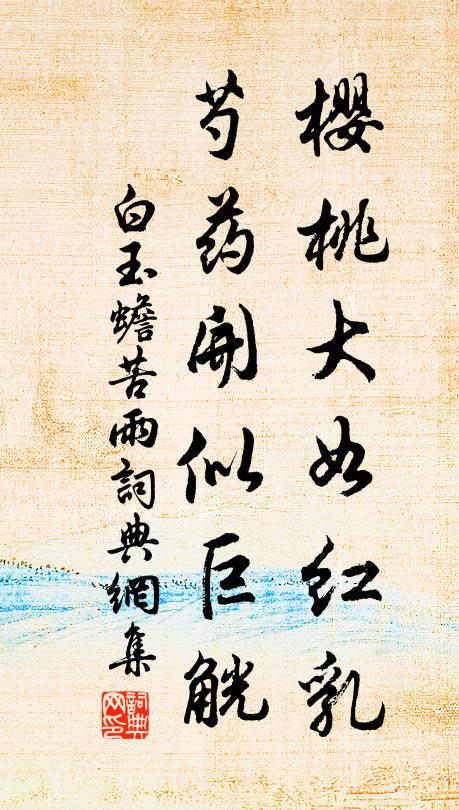 櫻桃大如红乳
芍药開似巨觥
白玉蟾苦雨詞典網集
詞典网印